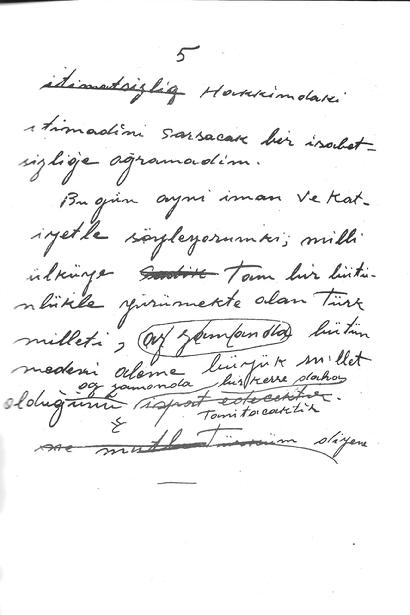 5
itimatsızlığ Hakkımdaki
itimadını sarsacak bir isabet-
sizliğe oğramadım.
Bu gün aynı iman ve kat-
iyetle söyleyorumki; milli
ülküye Tam bir bütü-
nlükle yürümekte olan Türk
milleti, az zamanda bütün
medeni aleme büyük millet
az zamanda bir kerre daha
olduğunu ispat edecektir.
Tanıtacaktır
ne mutlu Türküm diyene